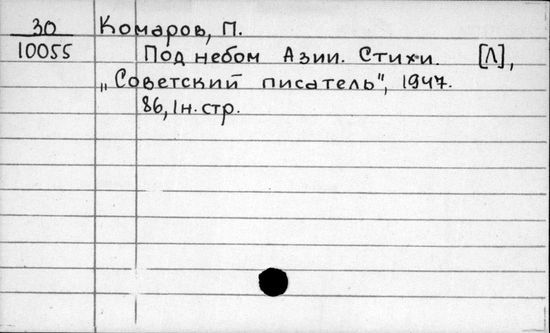 30
10055
Комаров, П.
Под небом Азии. Стихи. [Л],
„Советский писатель", 1947.
86, 1н. стр.